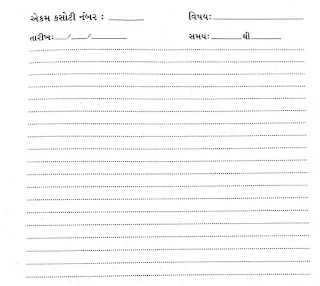 એકમ કસોટી નંબર : ________ વિષય: ____________________
તારીખ: ___/___/________ સમય: _______ થી ________